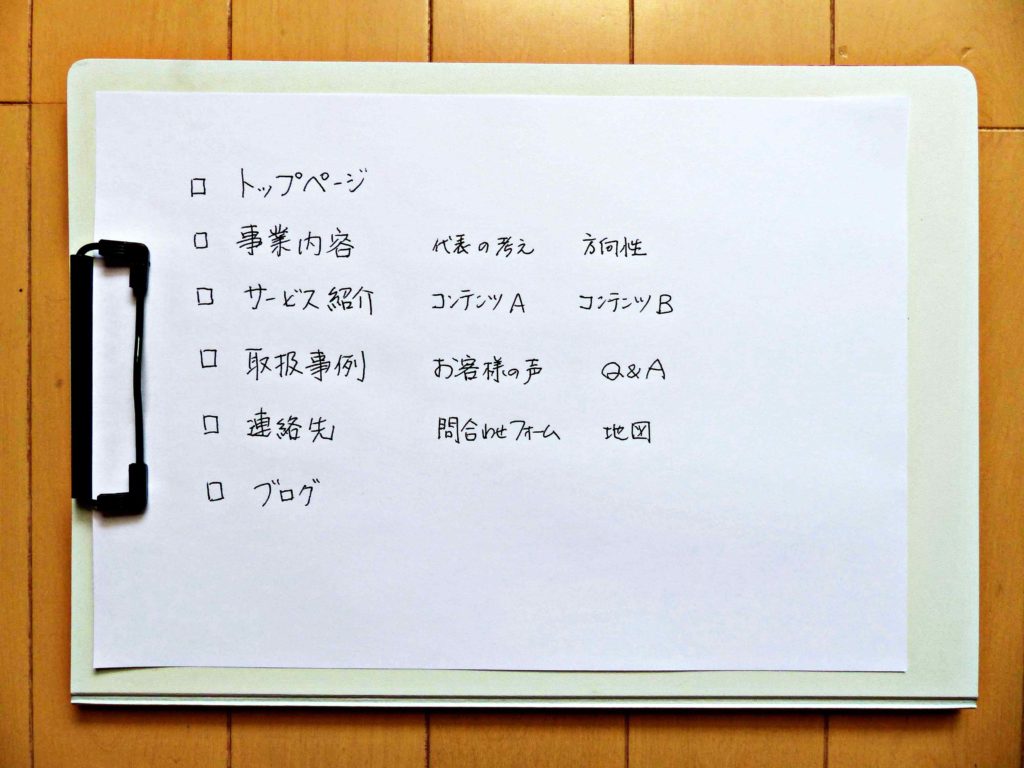 □ トップページ
□ 事業内容 代表の考え 方向性
□ サービス紹介 コンテンツA コンテンツB
□ 取扱事例 お客様の声 Q&A
□ 連絡先 問合わせフォーム 地図
□ ブログ